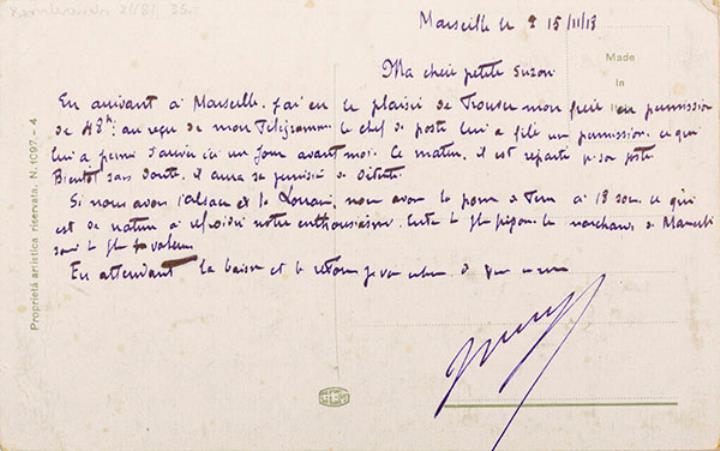 Marseille le 15/11/18
Made
In
Ma chère petite Suzon
En arrivant à Marseille, j'ai eu le plaisir de trouver mon frère en permission
de 48h; au reçu de mon Télégramme le chef de poste lui a filé une permission, ce qui
lui a permis d'arriver ici un jour avant moi. Ce matin, il est reparti p. son poste
Bientôt sans doute, il aura sa permission de Détente.
Si nous avons l'alsace et la Lorraine, nous avons la pomme de Terre à 18 sous, ce qui
est de nature à refroidir notre enthousiasme. les marchands de Marseille
sont les valeur
En attendant la baisse et le retour je vous
Proprietà artistica riservata. N. 1097. - 4